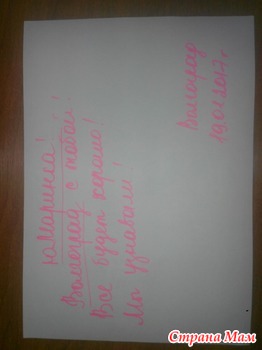 ЮМаринка!
Волгоград с тобой!
Все будет хорошо!
Мы узнавали!
Волгоград
19.01.2017 г
Страна Мам